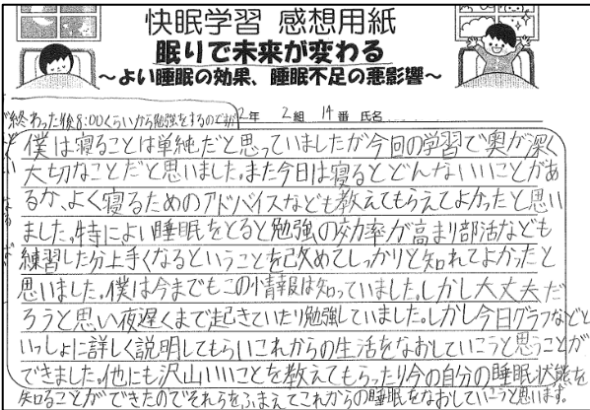 快眠学習 感想用紙
眠りで未来が変わる
～よい睡眠の効果、睡眠不足の悪影響～
終わった後8:00くらいから勉強をするので
2年 2組 14番 氏名
僕は寝ることは単純だと思っていましたが今回の学習で奥が深く
大切なことだと思いました。また今日は寝るとどんないいことがあ
るか、よく寝るためのアドバイスなども教えてもらえてよかったと思い
ました。特によい睡眠をとると勉強の効率が高まり部活なども
練習した分上手くなるということを改めてしっかりと知れてよかったと
思いました。僕は今までもこの情報は知っていました。しかし大丈夫だ
ろうと思い夜遅くまで起きていたり勉強していました。しかし今日グラフなどと
いっしょに詳しく説明してもらいこれからの生活をなおしていこうと思うことが
できました。他にも沢山いいことを教えてもらったり今の自分の睡眠状態を
知ることができたのでそれらをふまえてこれからの睡眠をなおしていこうと思います。